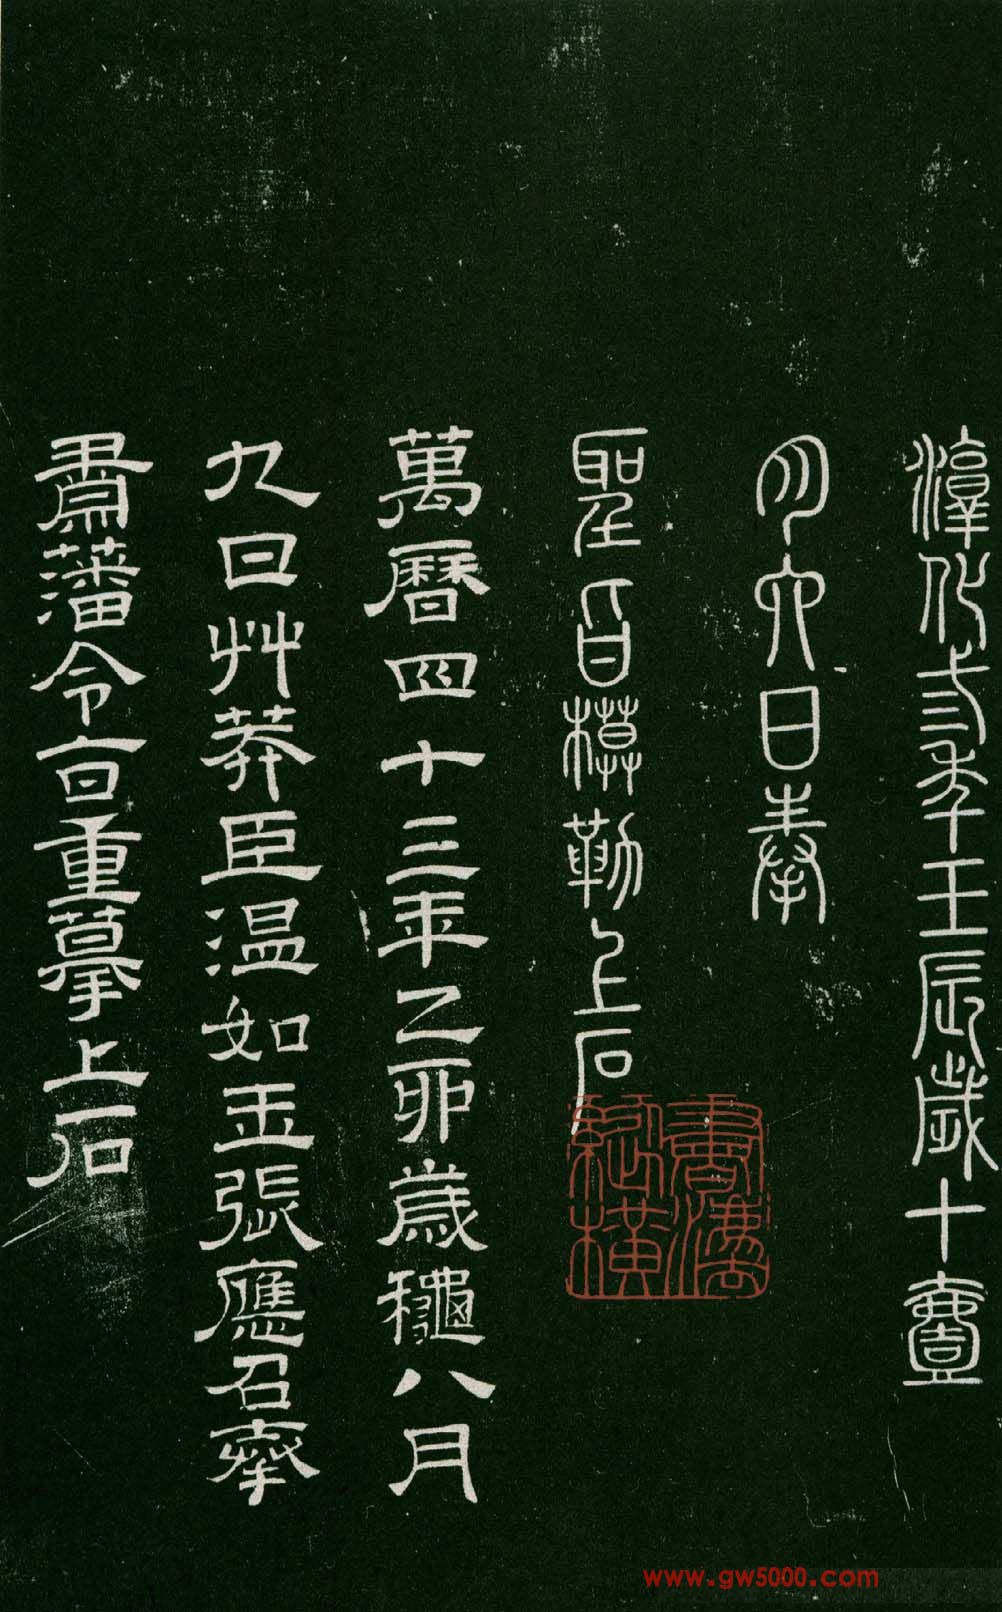 淳化三年壬辰歲十壹
月六日奉
聖旨模勒上石
萬曆四十三年乙卯歲龝八月
九日艸莽臣溫如玉張應召奉
肅藩令旨重摹上石
www.gw5000.com